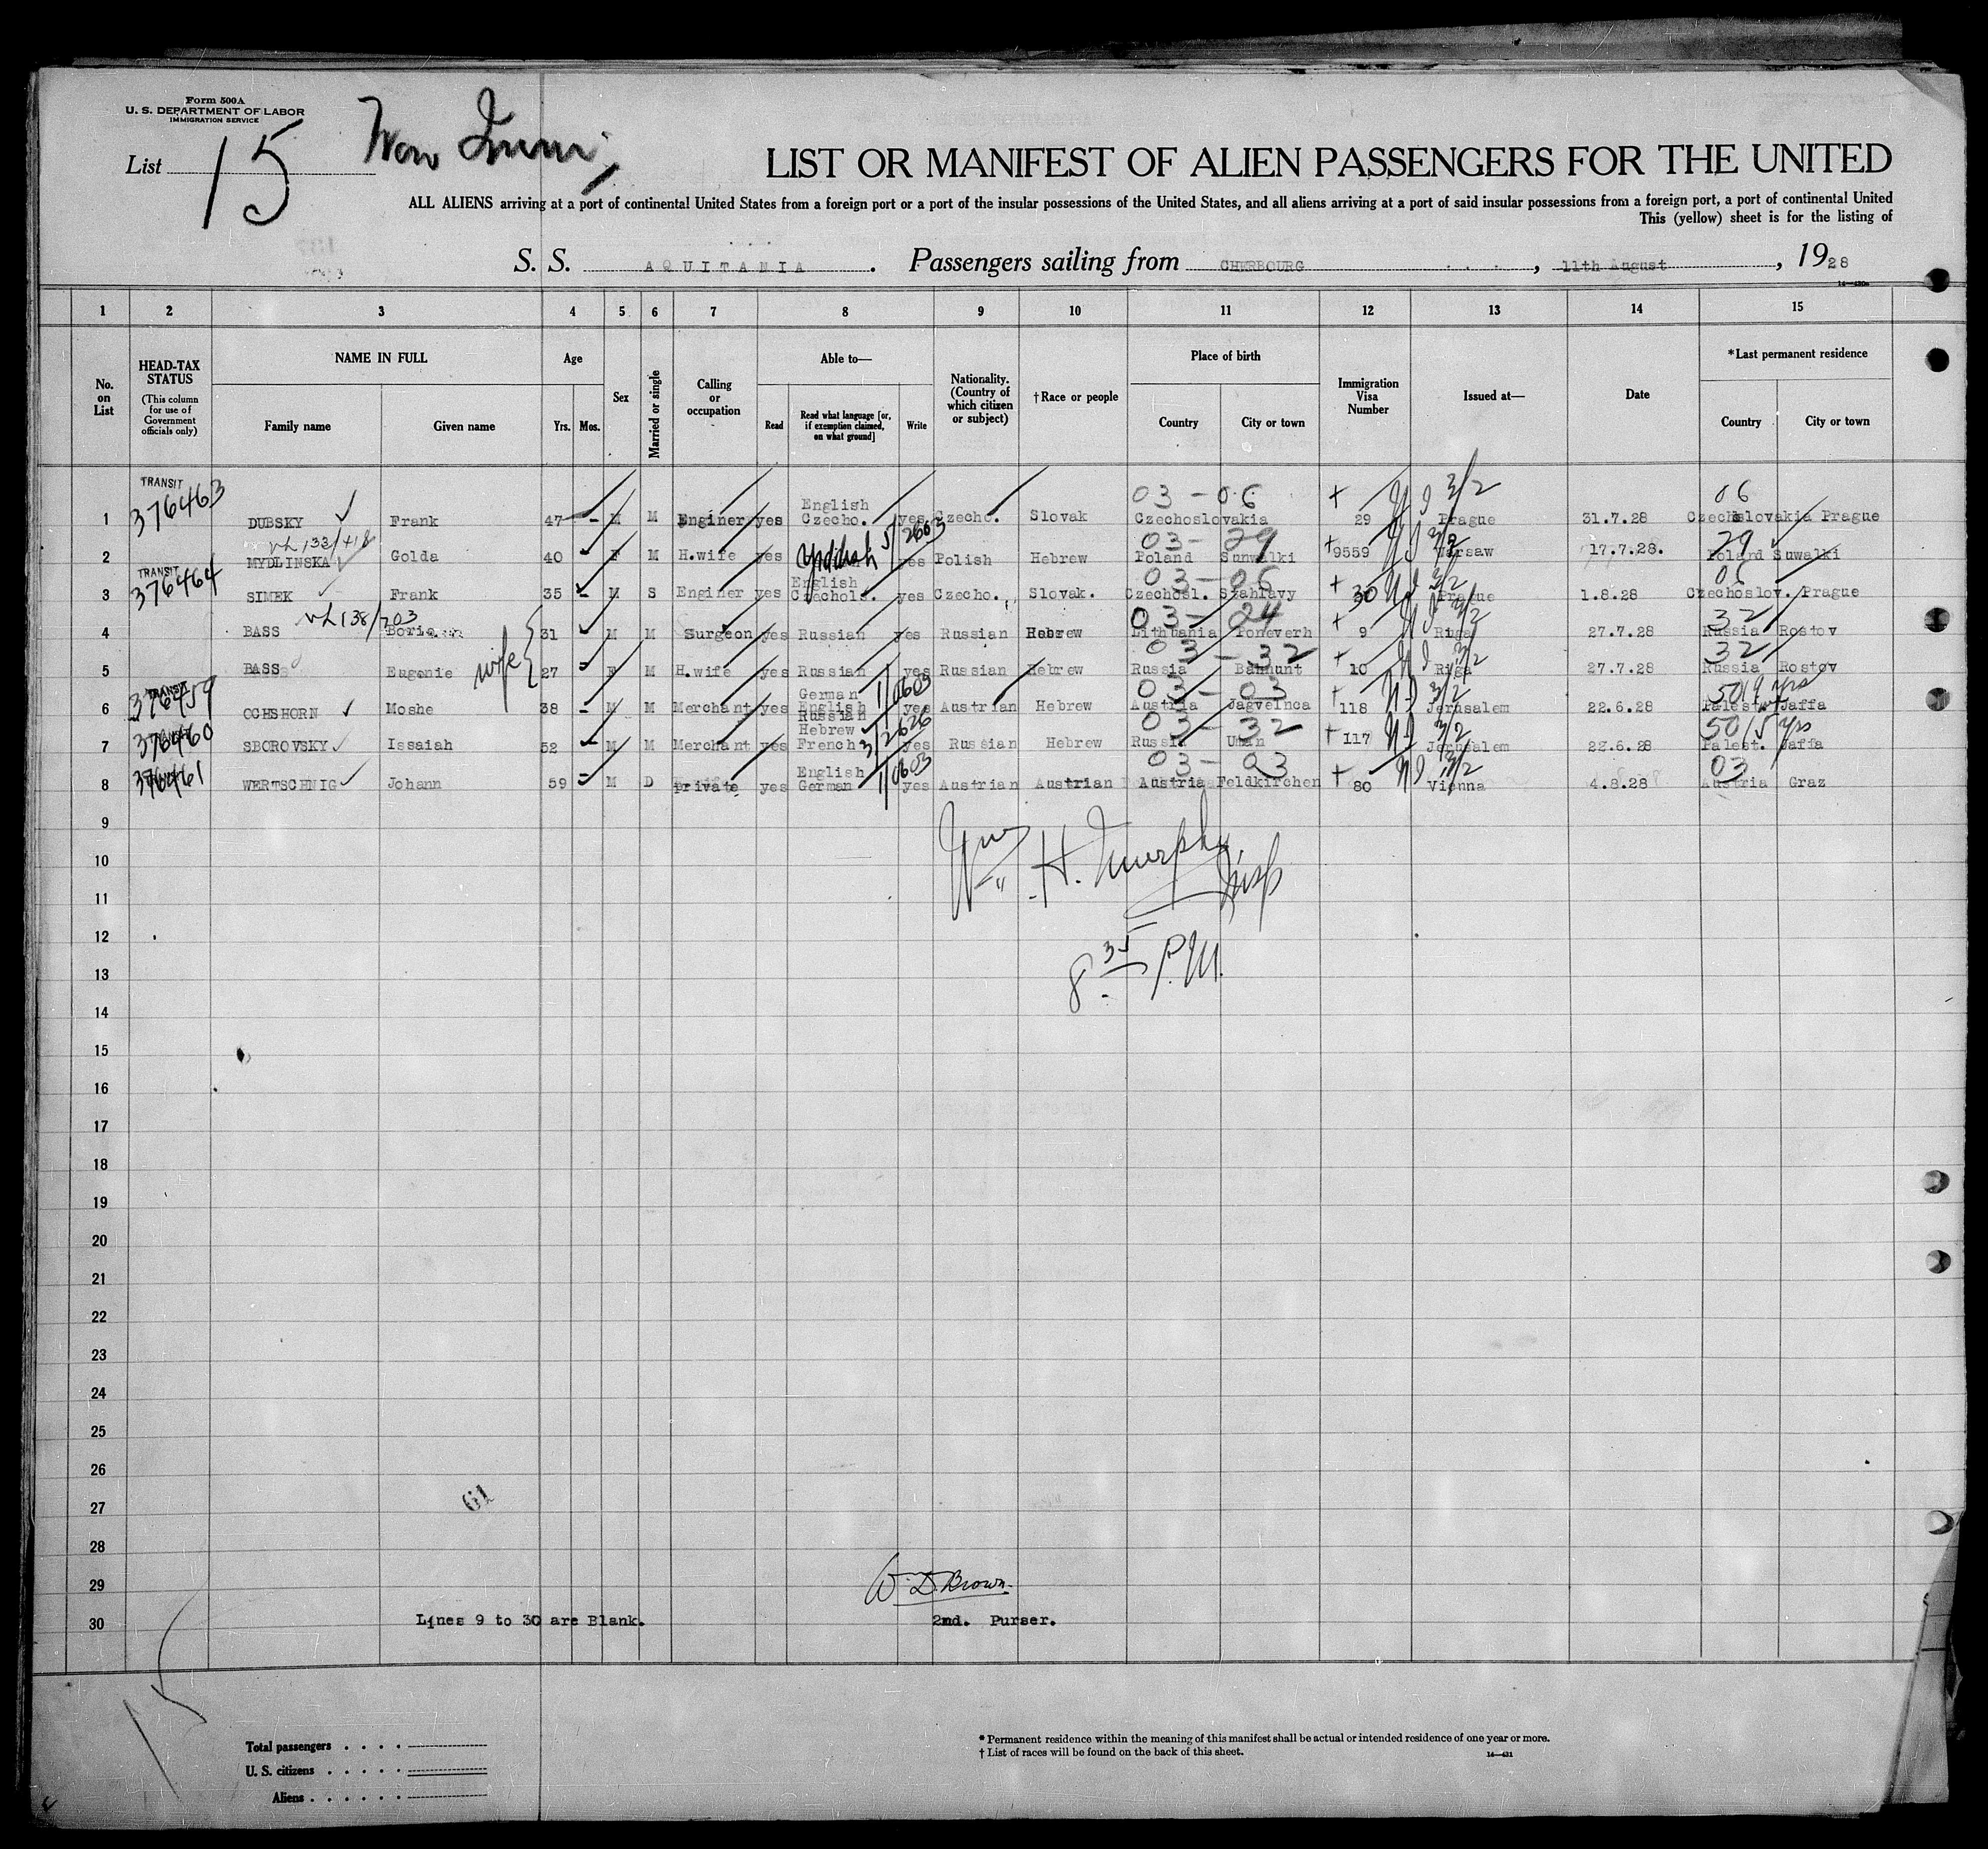 Form 500A
U. S. DEPARTMENT OF LABOR
IMMIGRATION SERVICE
List 15
LIST OR MANIFEST OF ALIEN PASSENGERS FOR THE UNITED
ALL ALIENS arriving at a port of continental United States from a foreign port or a port of the insular possessions of the United States, and all aliens arriving at a port of said insular possessions from a foreign port, a port of continental United
This (yellow) sheet is for the listing of
S. S. AQUITANIA. Passengers sailing from CHERBOURG, 11th August, 1928
1 2 3 4 5 6 7 8 9 10 11 12 13 14 15
No. on List
HEAD-TAX STATUS
(This column for use of Government officials only)
NAME IN FULL
Family name Given name
Age
Yrs. Mos.
Sex
Married or single
Calling or occupation
Able to—
Read
Read what language [or, if exemption claimed, on what ground]
Write
Nationality. (Country of which citizen or subject)
†Race or people
Place of birth
Country City or town
Immigration Visa Number
Issued at—
Date
*Last permanent residence
Country City or town
TRANSIT 03 - 06 3/2 06
1 376463 DUBSKY Frank 47 - M M Enginer yes English Czecho. yes Czecho. Slovak Czechoslovakia 29 Prague 31.7.28 Czechoslovakia Prague
03 - 29 3/2 29
2 MYDLINSKA Golda 40 F M H.wife yes Yiddish yes Polish Hebrew Poland Suwalki 9559 Warsaw 17.7.28. Poland Suwalki
TRANSIT 03 - 06 3/2 06
3 376464 SIMEK Frank 35 - M S Enginer yes English Czechols. yes Czecho. Slovak. Czechosl. Szahlavy 30 Prague 1.8.28 Czechoslov. Prague
03 - 24 3/2 32
4 BASS Boris 31 M M Surgeon yes Russian yes Russian Hebrew Lithuania Poneverh 9 Riga 27.7.28 Russia Rostov
wife 03 - 32 3/2 32
5 BASS Eugenie 27 F M H.wife yes Russian yes Russian Hebrew Russia 10 Riga 27.7.28 Russia Rostov
TRANSIT 03 - 03 3/2
6 376459 OCHSHORN Moshe 38 - M M Merchant yes German English yes Austrian Hebrew Austria 118 Jerusalem 22.6.28 Palest. Jaffa
03 - 32 3/2 50 / 5 yrs
7 376460 SBOROVSKY Issaiah 52 - M M Merchant yes Russian Hebrew French yes Russian Hebrew Russia Uman 117 Jerusalem 22.6.28 Palest. Jaffa
03 - 03 3/2 03
8 376461 WERTSCHNIG Johann 59 - M D private yes English German yes Austrian Austrian Austria Feldkirchen 80 Vienna 4.8.28 Austria Graz
9
10
Wm. H. Murphy
Insp
11
12
8 35 P.M.
13
14
15
16
17
18
19
20
21
22
23
24
25
26
27
61
28
29
W. D. Brown.
30 Lines 9 to 30 are Blank. 2nd. Purser.
Total passengers
U. S. citizens
Aliens
* Permanent residence within the meaning of this manifest shall be actual or intended residence of one year or more.
† List of races will be found on the back of this sheet.
14—431